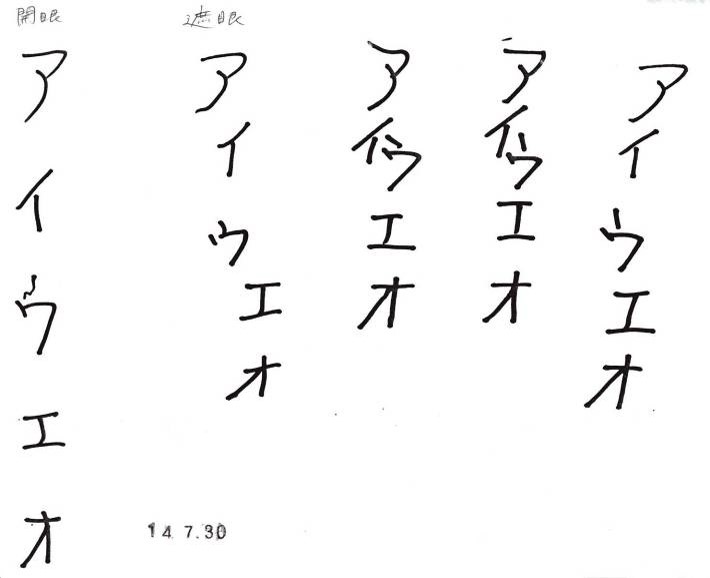 開眼
アイウエオ
遮眼
アイウエオ
アイウエオ
アイウエオ
アイウエオ
14 7.30